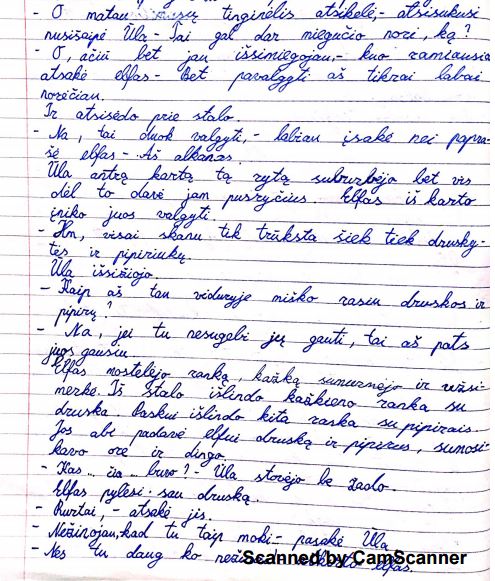 - O matau mūsų tinginėlis atsikėlė,- atsisukusi
nusišaipė Ūla - Tai gal dar miegučio nori, ką?
- O, ačiū bet jau išsimiegojau,- kuo ramiausia
atsakė elfas - Bet pavalgyti aš tikrai labai
norėčiau.
Ir atsisėdo prie stalo.
- Na, tai duok valgyti,- labiau įsakė nei papra-
šė elfas - Aš alkanas.
Ūla antrą kartą tą rytą suburbėjo bet vis
dėl to davė jam pusryčius. Elfas iš karto
įniko juos valgyti.
- Hm, visai skanu tik trūksta šiek tiek drusky-
tės ir pipiriukų.
Ūla išsižiojo.
- Kaip aš tau viduryje miško rasiu druskos ir
pipirų?
- Na, jei tu nesugebi jų gauti, tai aš pats
juos gausiu.
Elfas mostelėjo ranką, kažką sumurmėjo ir užsi-
merkė. Iš stalo išlindo kažkieno ranka su
druska. Paskui išlindo kita ranka su pipirais.
Jos abi padavė elfui druską ir pipirus, sumosi-
kavo ore ir dingo.
- Kas... čia... buvo? - Ūla stovėjo be žado.
Elfas pylėsi sau druską.
- Burtai,- atsakė jis.
- Nežinojau, kad tu taip moki - pasakė Ūla
- Nes tu daug ko elfas.
Scanned by CamScanner